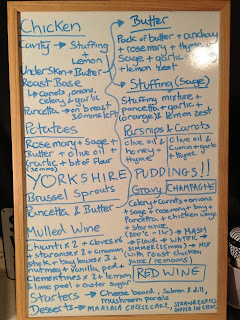 Chicken
Cavity → Stuffing
+
Lemon
UnderSkin → Butter
Roast Base
↳ Carrots, onions,
celery & garlic
Pancetta → on breast
30mins left
Potatoes
Rosemary + Sage +
Butter + olive oil
Garlic + bit of flour
(30 mins)
YORKSHIRE PUDDINGS!!
Brussel Sprouts
Pancetta & Butter
Mulled Wine
Chianti x 2 + cloves x 6
+ staranise x 2 + cinnamon
stick + bay leaves x 3 +
nutmeg + vanilla pod +
Clementines x 2 + lemon
& lime peel + caster sugar
Starters → Cheese board, Salmon & dill,
mushroom parcels
Deserts → MARSALA CHEESECAKE, STRAWBERRIES
Butter
Pack of butter + cranberry
+ rosemary + thyme +
Sage + garlic +
lemon zest
Stuffing (Sage)
Stuffing mixture +
pancetta + garlic +
(orange) & lemon zest
Parsnips & Carrots
Olive oil &
honey +
thyme
Olive oil &
Cumin + garlic
+ thyme
Gravy CHAMPAGNE
Celery + carrots + onions
+ sage + rosemary + bay +
Pancetta + chicken wings
+ staranise
(200°c - 1hr) → MASH
+ FLOUR → WATER →
SIMMER (25mins) → MIX
with roast chicken
juice (remains)
RED WINE